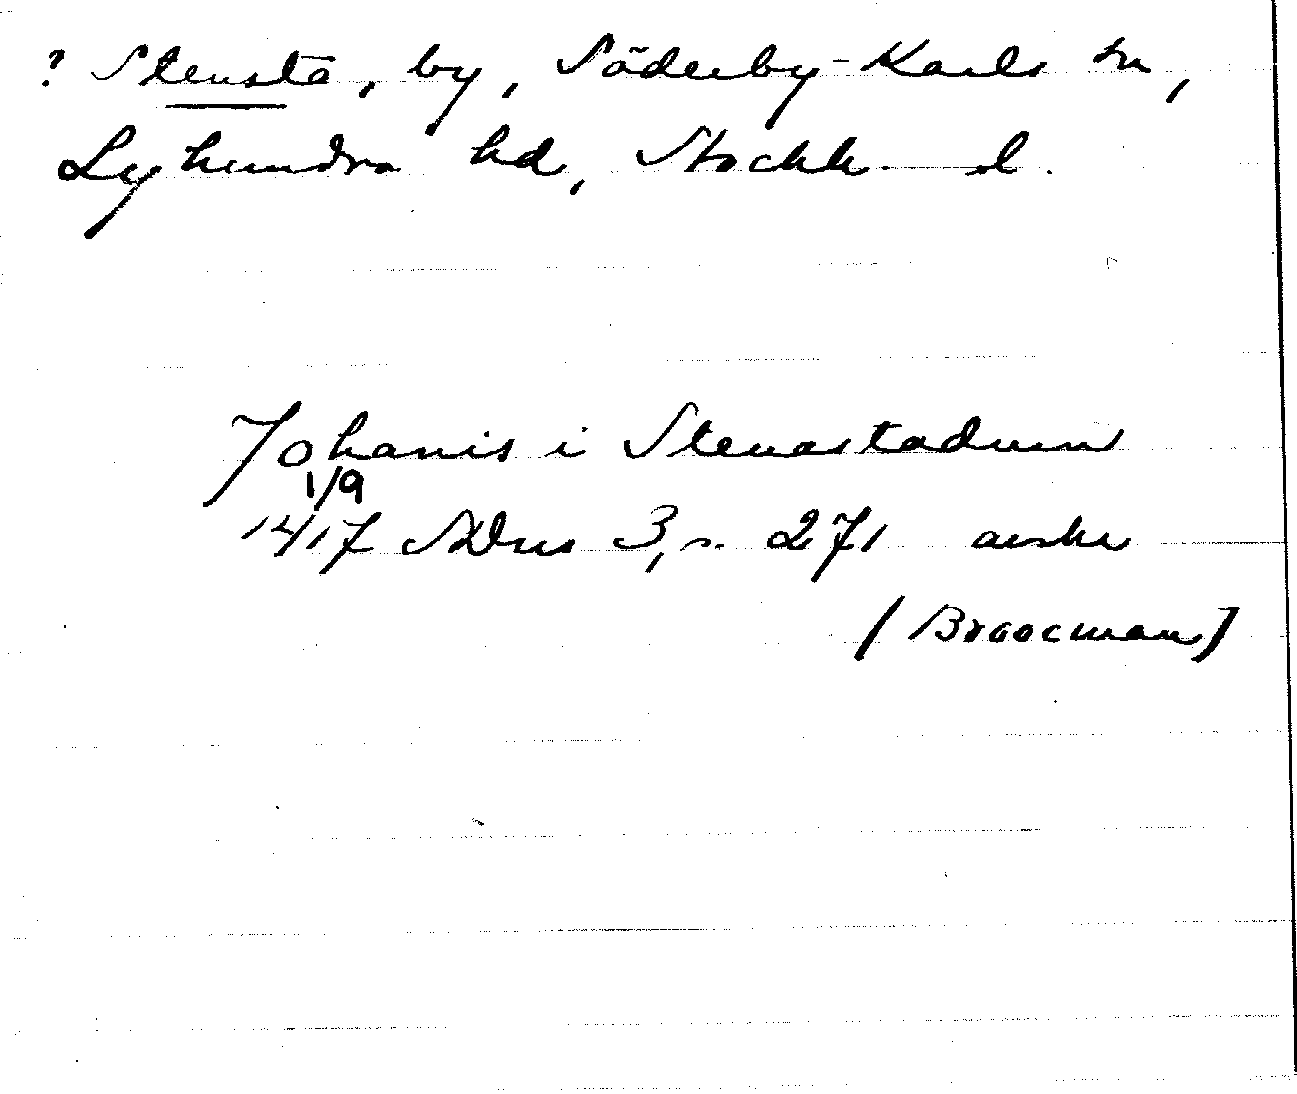 ? Stensta, by, Söderby-Karls sn,
Lyhundra hd, Stockh. l.
Johanis i Stenastadum
1/9
1417 SDns 3, s. 271 avskr
(Broocman)